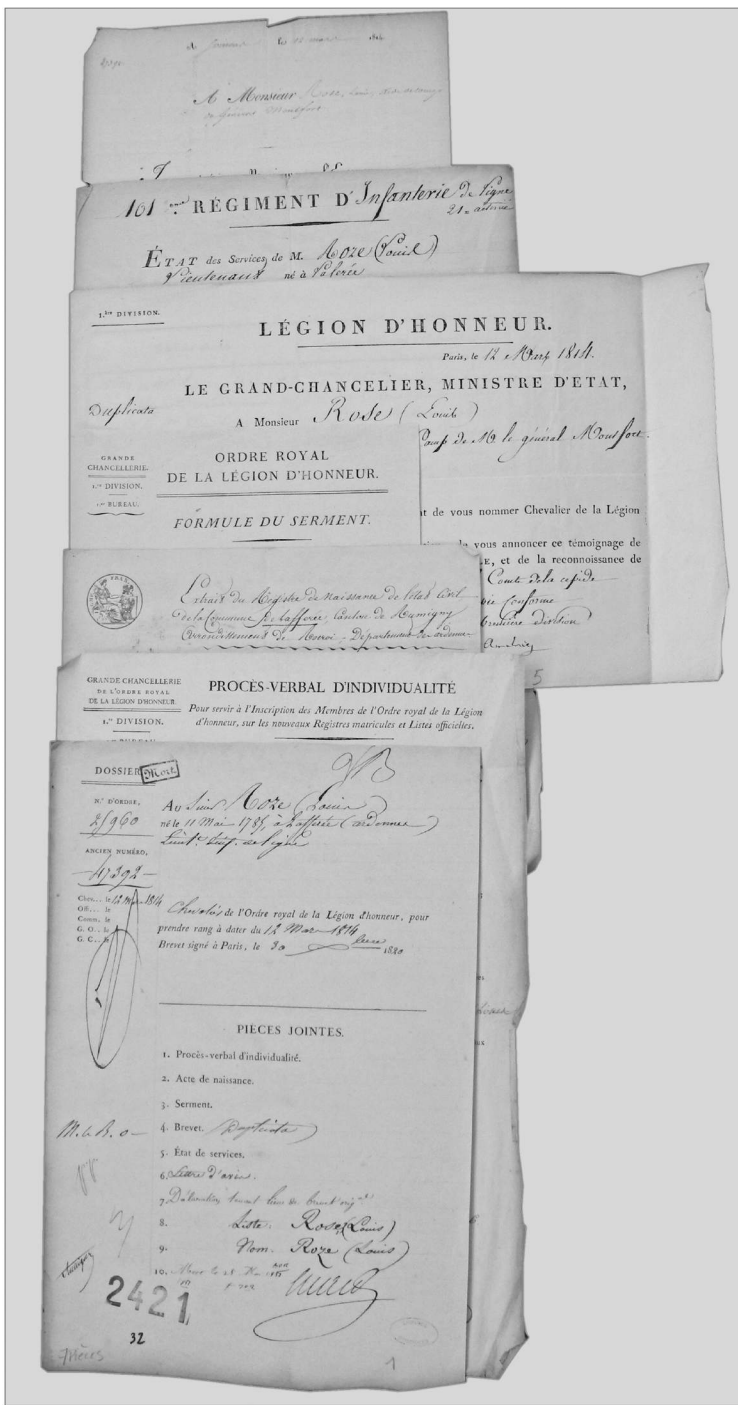 A le mars 1814
A Monsieur
101 ème RÉGIMENT D'Infanterie de Ligne
ÉTAT des Services de M. Roze (Louis)
Lieutenant né à
1.re DIVISION.
LÉGION D'HONNEUR.
Paris, le 12 Mars 1814.
LE GRAND-CHANCELIER, MINISTRE D'ETAT,
Duplicata
A Monsieur Rose (Louis)
Camp de M. le général Montfort.
GRANDE
CHANCELLERIE.
1.re DIVISION.
1.er BUREAU.
ORDRE ROYAL
DE LA LÉGION D'HONNEUR.
FORMULE DU SERMENT.
t de vous nommer Chevalier de la Légion
vous annoncer ce témoignage de
E, et de la reconnaissance de
Comte
conforme
première division
5
Extrait du Registre de naissance de l'état Civil
de la Commune de Lafferée, Canton de Rumigny
Arrondissement de Rocroi - Département des ardennes
GRANDE CHANCELLERIE
DE L'ORDRE ROYAL
DE LA LÉGION D'HONNEUR.
1.re DIVISION.
PROCÈS-VERBAL D'INDIVIDUALITÉ
Pour servir à l'Inscription des Membres de l'Ordre royal de la Légion
d'honneur, sur les nouveaux Registres matricules et Listes officielles.
DOSSIER Mort.
N.° D'ORDRE,
25960
ANCIEN NUMÉRO,
47392
Chev... le 12 Mars 1814
Offi... le
Comm. le
G. O.. le
G. C.. le
Au Sieur Roze (Louis)
né le 11 Mai 1785, à Lafferée (ardennes)
Chevalier de l'Ordre royal de la Légion d'honneur, pour
prendre rang à dater du 12 Mars 1814
Brevet signé à Paris, le 30 1820
PIÈCES JOINTES.
1. Procès-verbal d'individualité.
2. Acte de naissance.
3. Serment.
4. Brevet. Duplicata
5. État de services.
6. Lettre d'avis.
7. Déclaration tenant lieu de brevet orig.al
8. Liste. Rose (Louis)
9. Nom. Roze (Louis)
10.
2421
32
7 Pièces
1